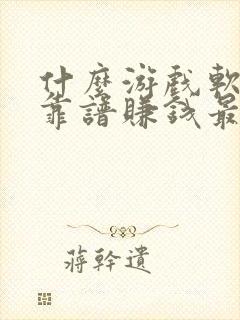 什麼游戲軟
靠譜賺錢最
蔣幹遺